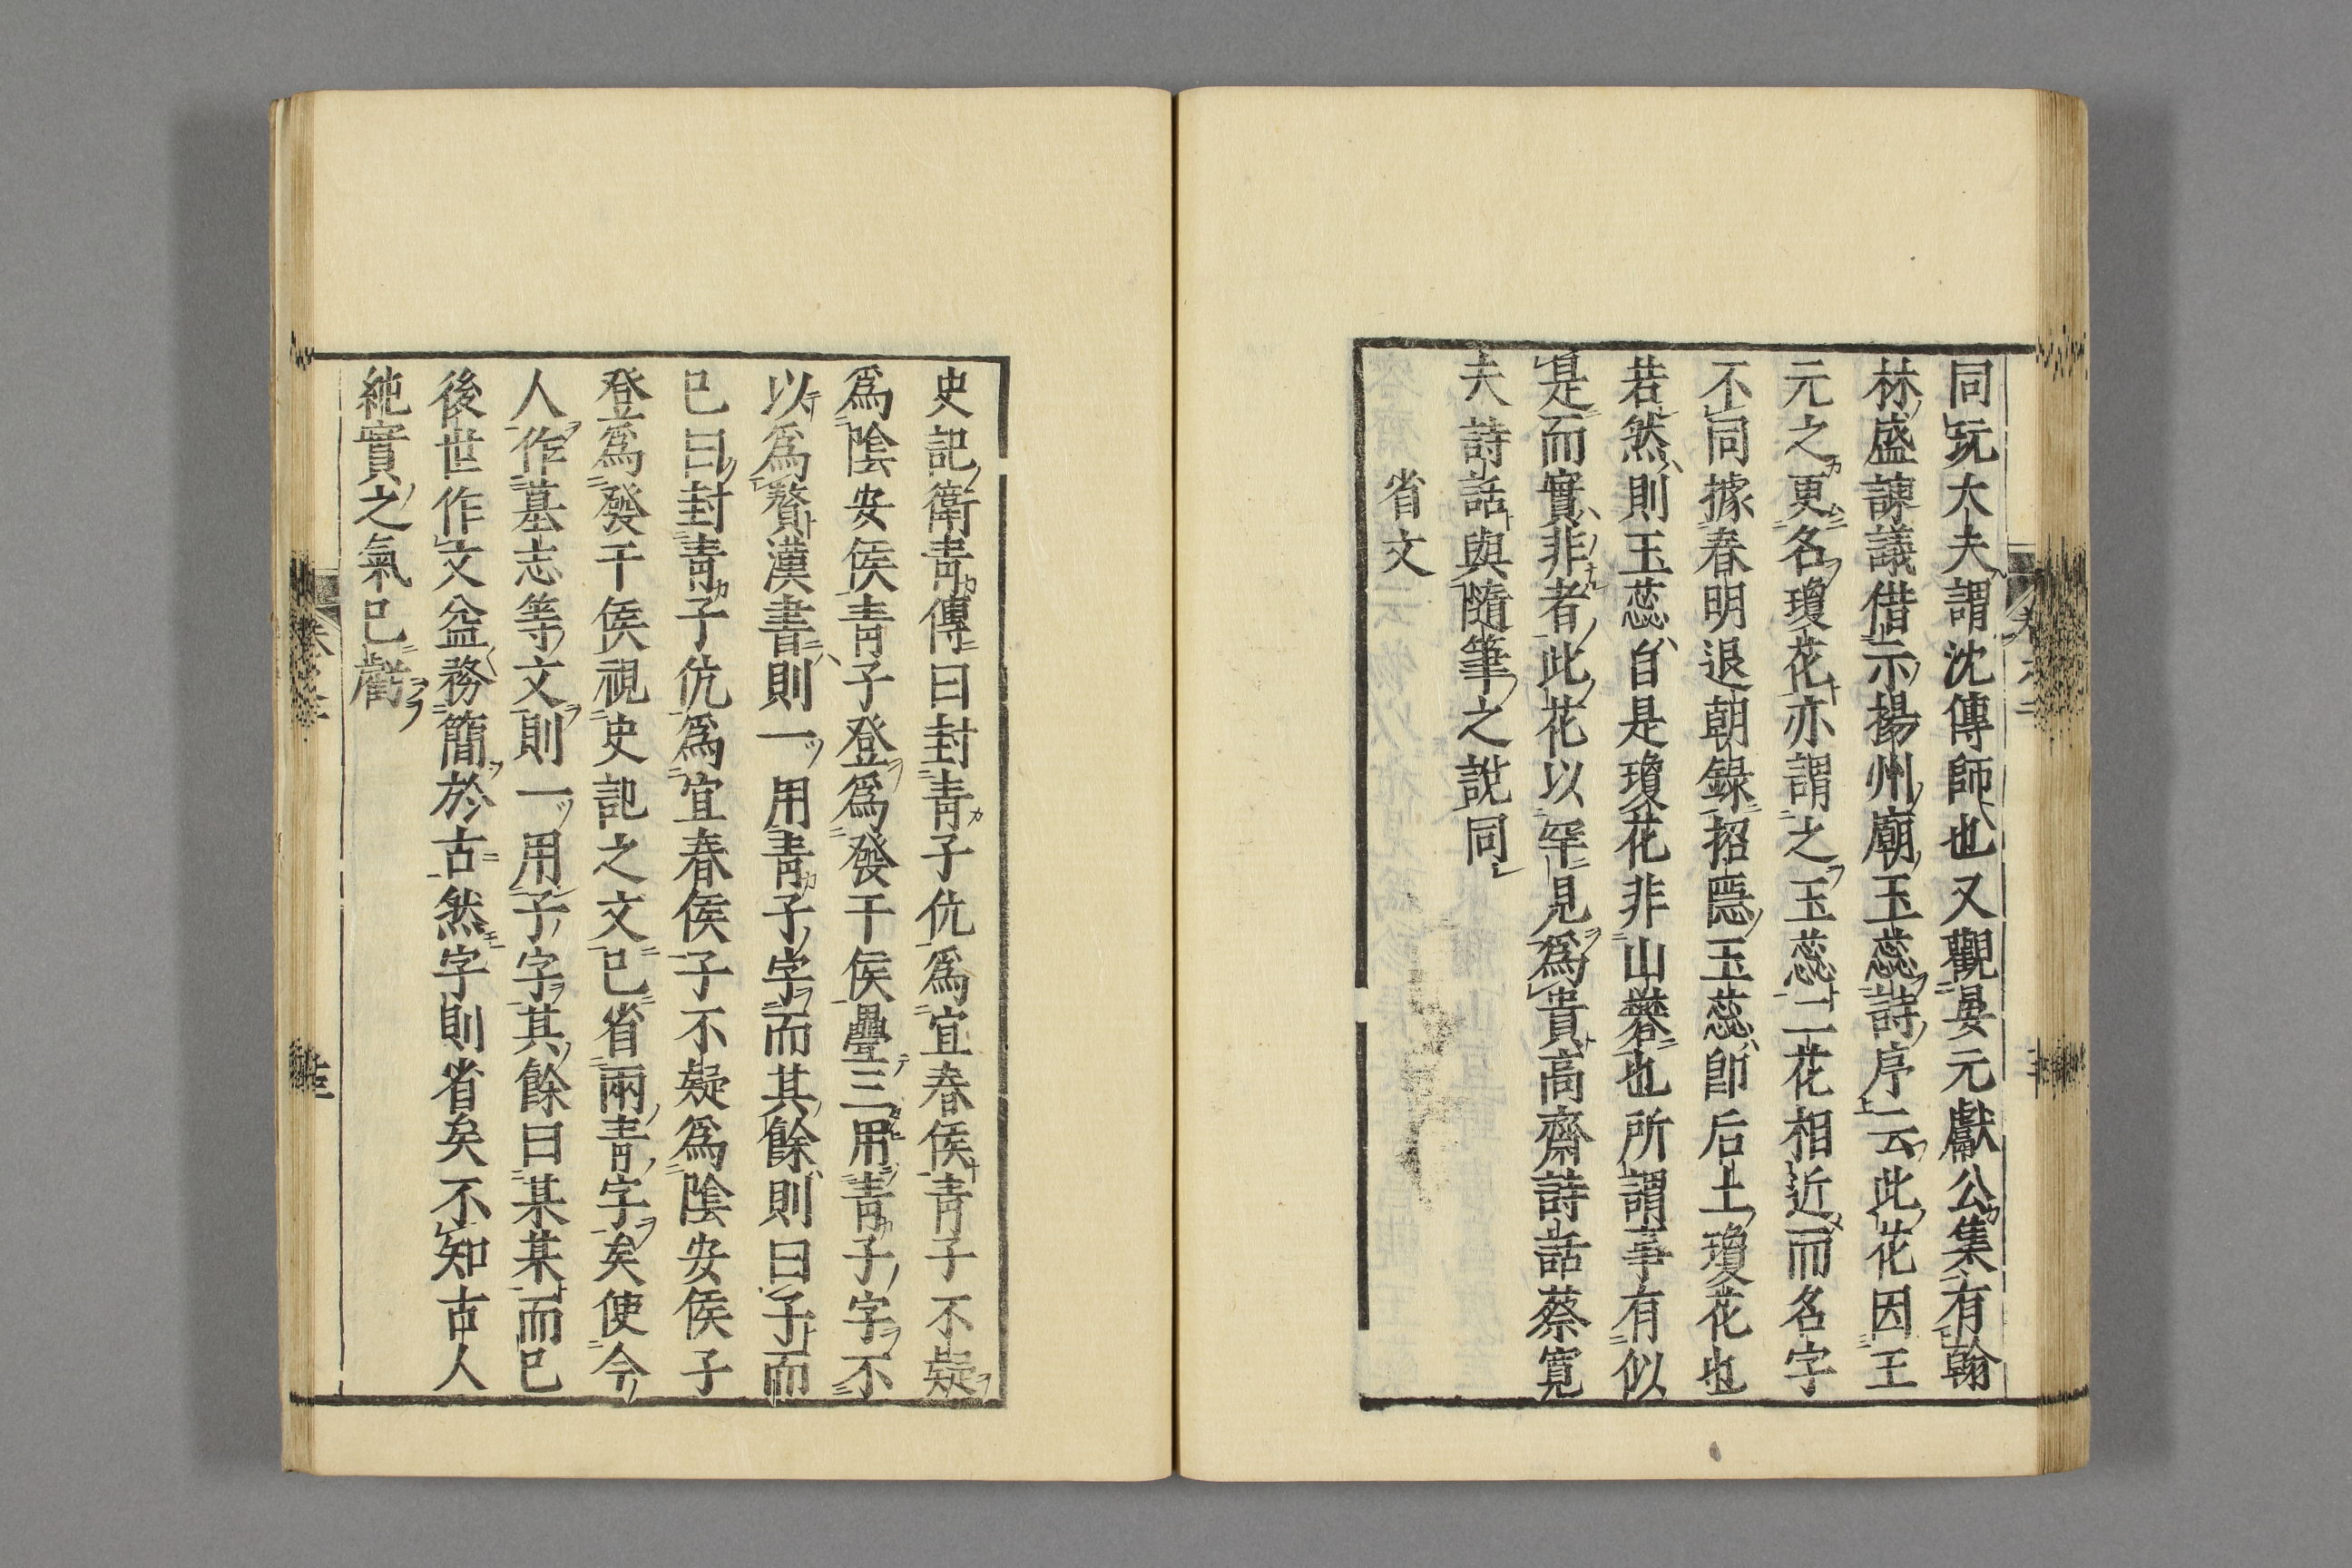 同玩大夫謂沈傳師也又觀晏元獻公集有翰
林盛諫議借示揚州廟玉蕊詩序云此花因王
元之更名瓊花亦謂之玉蕊二花相近而名字
不同據春明退朝錄招隱玉蕊卽后土瓊花也
若然則玉蕊自是瓊花非山礬也所謂事有似
是而實非者此花以罕見爲貴高齋詩話蔡寬
夫詩話與隨筆之說同
省文
史記衛青傳曰封青子伉爲宜春侯青子不疑
爲陰安侯青子登爲發干侯疊三用青子字不
以爲贅漢書則一用青子字而其餘則曰子而
已曰封青子伉爲宜春侯子不疑爲陰安侯子
登爲發干侯視史記之文已省兩青字矣使今
人作墓志等文則一用子字其餘曰某某而已
後世作文益務簡於古然字則省矣不知古人
純實之氣已虧